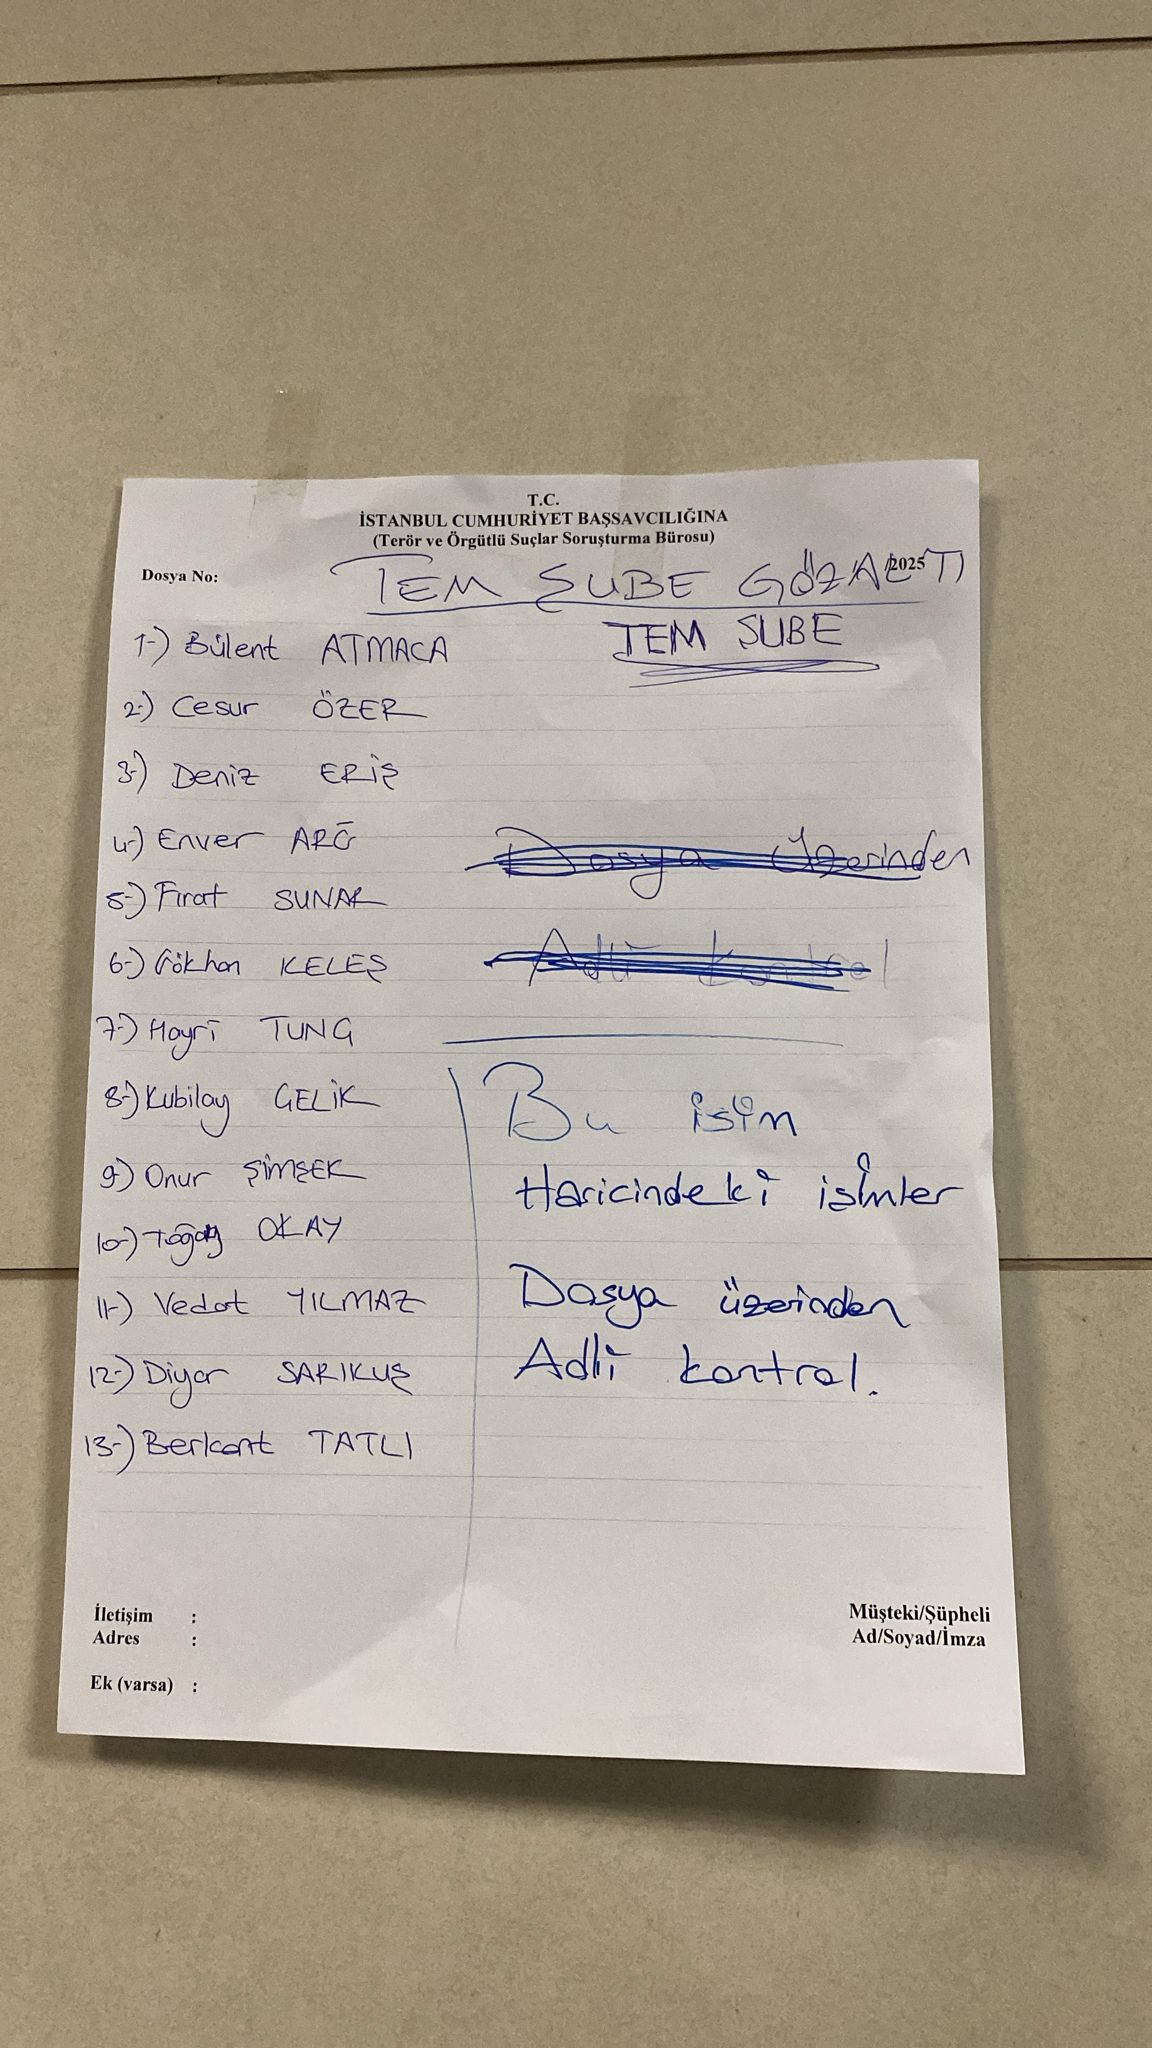 T.C.
İSTANBUL CUMHURİYET BAŞSAVCILIĞINA
(Terör ve Örgütlü Suçlar Soruşturma Bürosu)
Dosya No: /2025
TEM ŞUBE GÖZALTI
TEM ŞUBE
1-) Bülent ATMACA
2-) Cesur ÖZER
3-) Deniz ERİŞ
4-) Enver
5-) Fırat SUNAR
6-) Gökhan KELEŞ
7-) Hayri TUNG
8-) Kubilay GELİK
9-) Onur ŞİMŞEK
10-) OKAY
11-) Vedat YILMAZ
12-) Diyar SARIKUŞ
13-) Berkant TATLI
Dosya üzerinden
Adli Kontrol
Bu isim
Haricindeki isimler
Dosya üzerinden
Adli kontrol.
İletişim :
Adres :
Ek (varsa) :
Müşteki/Şüpheli
Ad/Soyad/İmza